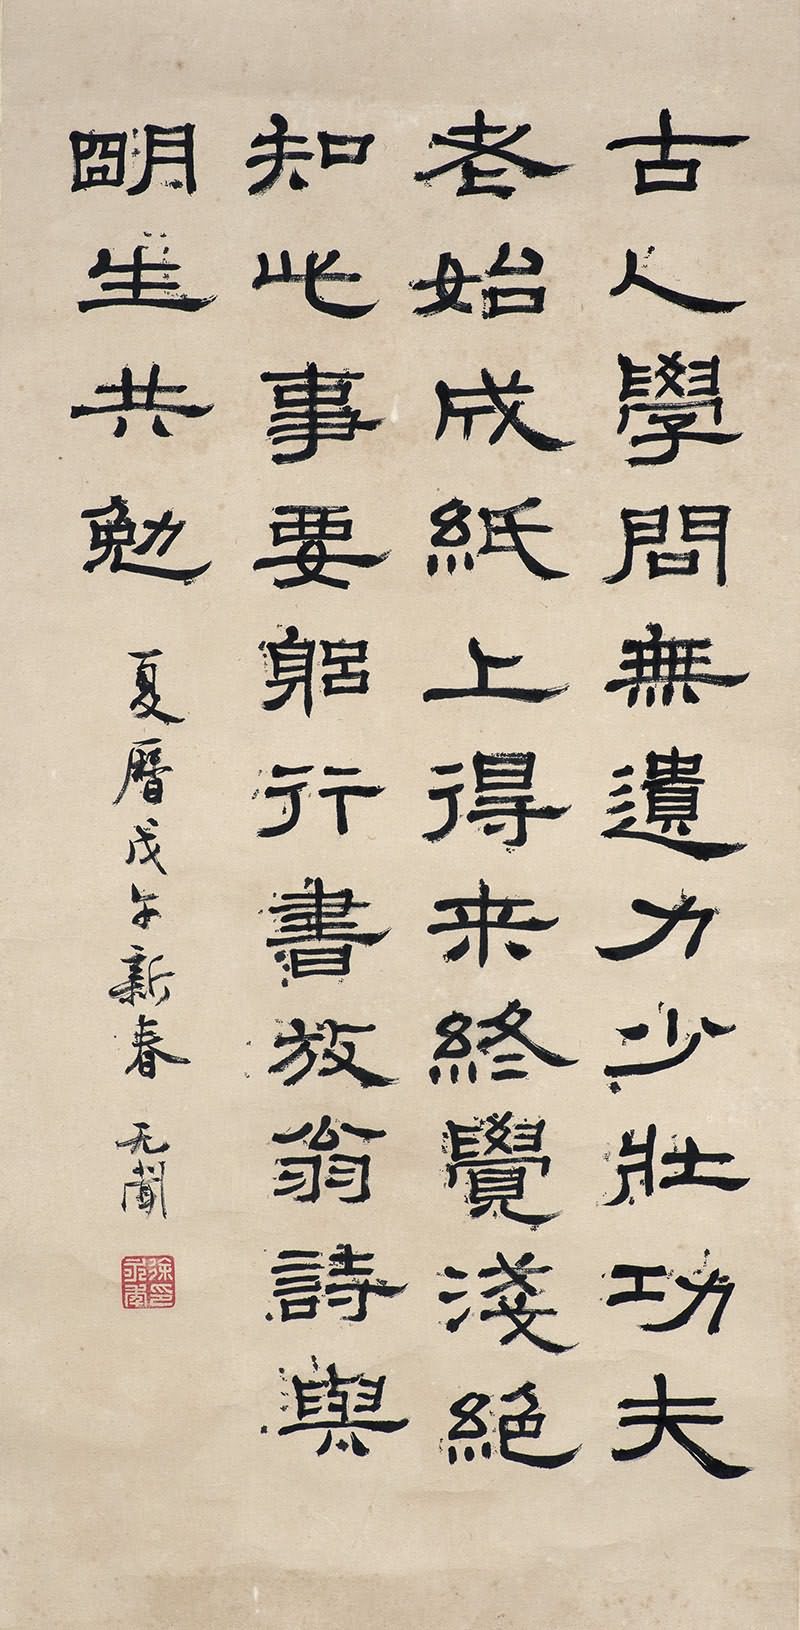 古人學問無遺力少壯功夫
老始成紙上得来終覺淺絕
知此事要躳行書放翁詩與
朙生共勉
夏曆戊午新春 无聞
徐印永年